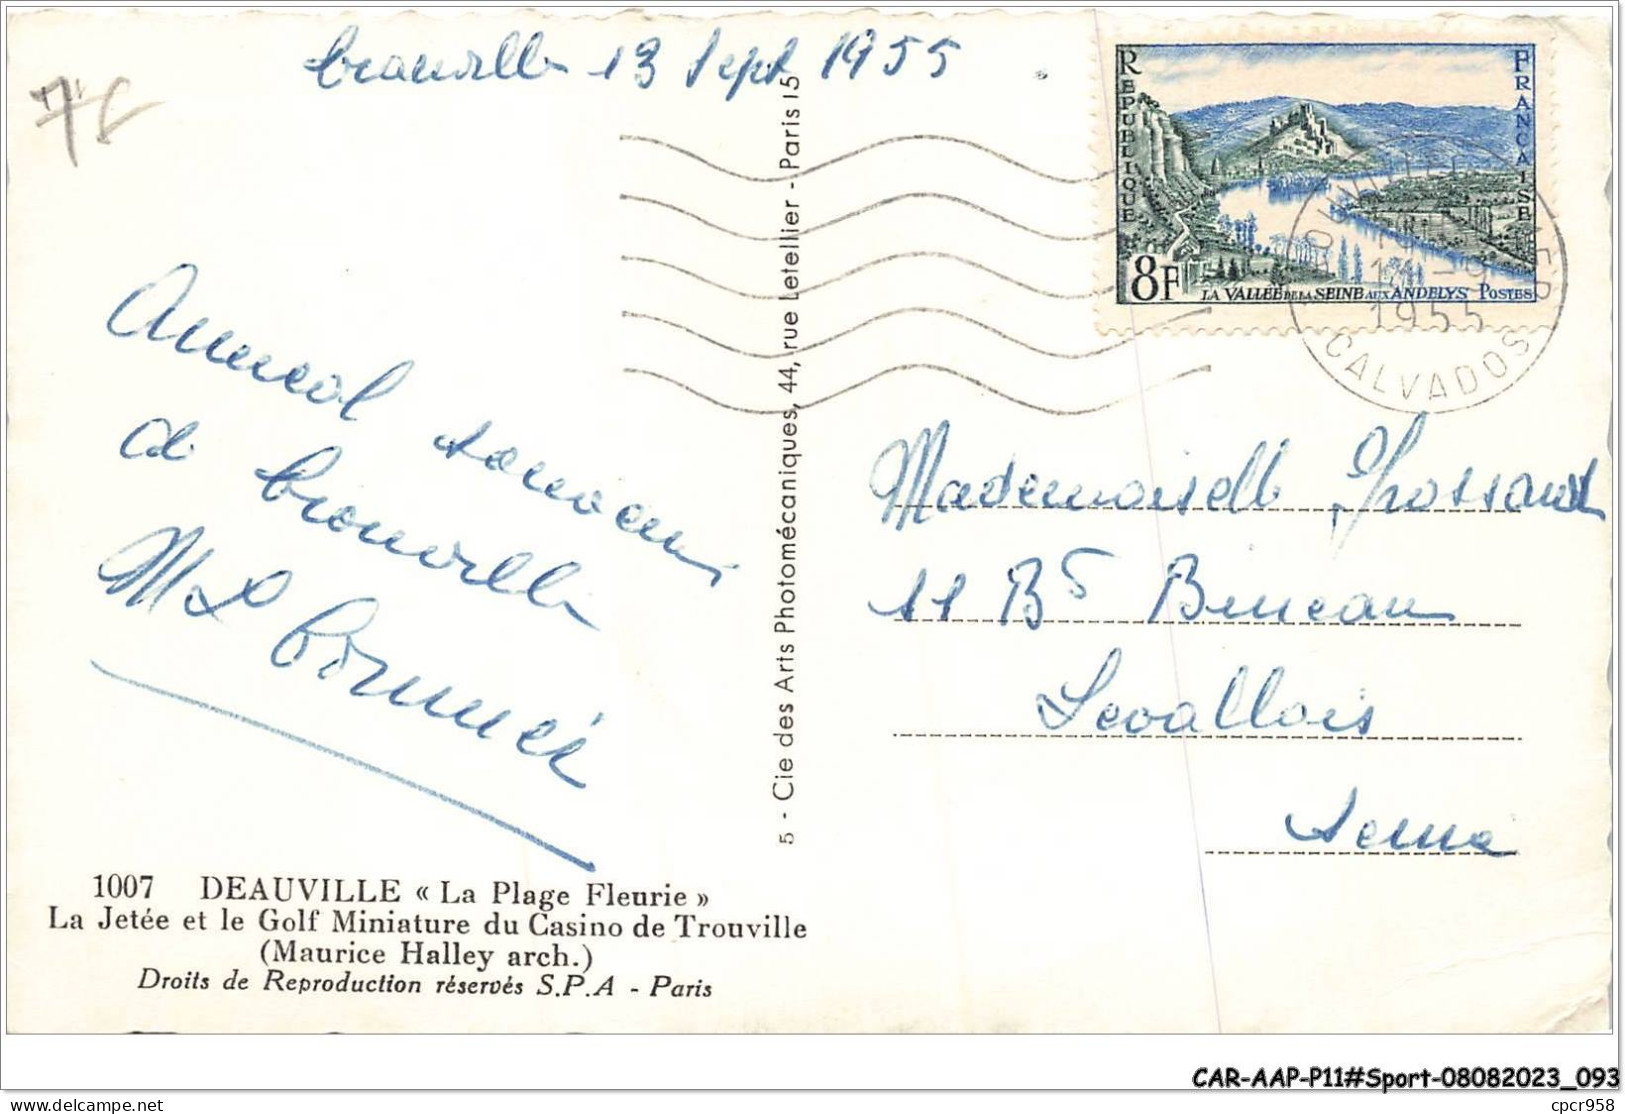 Trouville 13 Sept 1955
RÉPUBLIQUE FRANÇAISE
8F LA VALLÉE DE LA SEINE AUX ANDELYS POSTES
1955
CALVADOS
Amical souvenir
de Trouville
Mademoiselle
11 Bd Bineau
Levallois
Seine
5 - Cie des Arts Photomécaniques, 44, rue Letellier - Paris 15
1007 DEAUVILLE « La Plage Fleurie »
La Jetée et le Golf Miniature du Casino de Trouville
(Maurice Halley arch.)
Droits de Reproduction réservés S.P.A - Paris
CAR-AAP-P11#Sport-08082023_093
delcampe.net
cpcr958